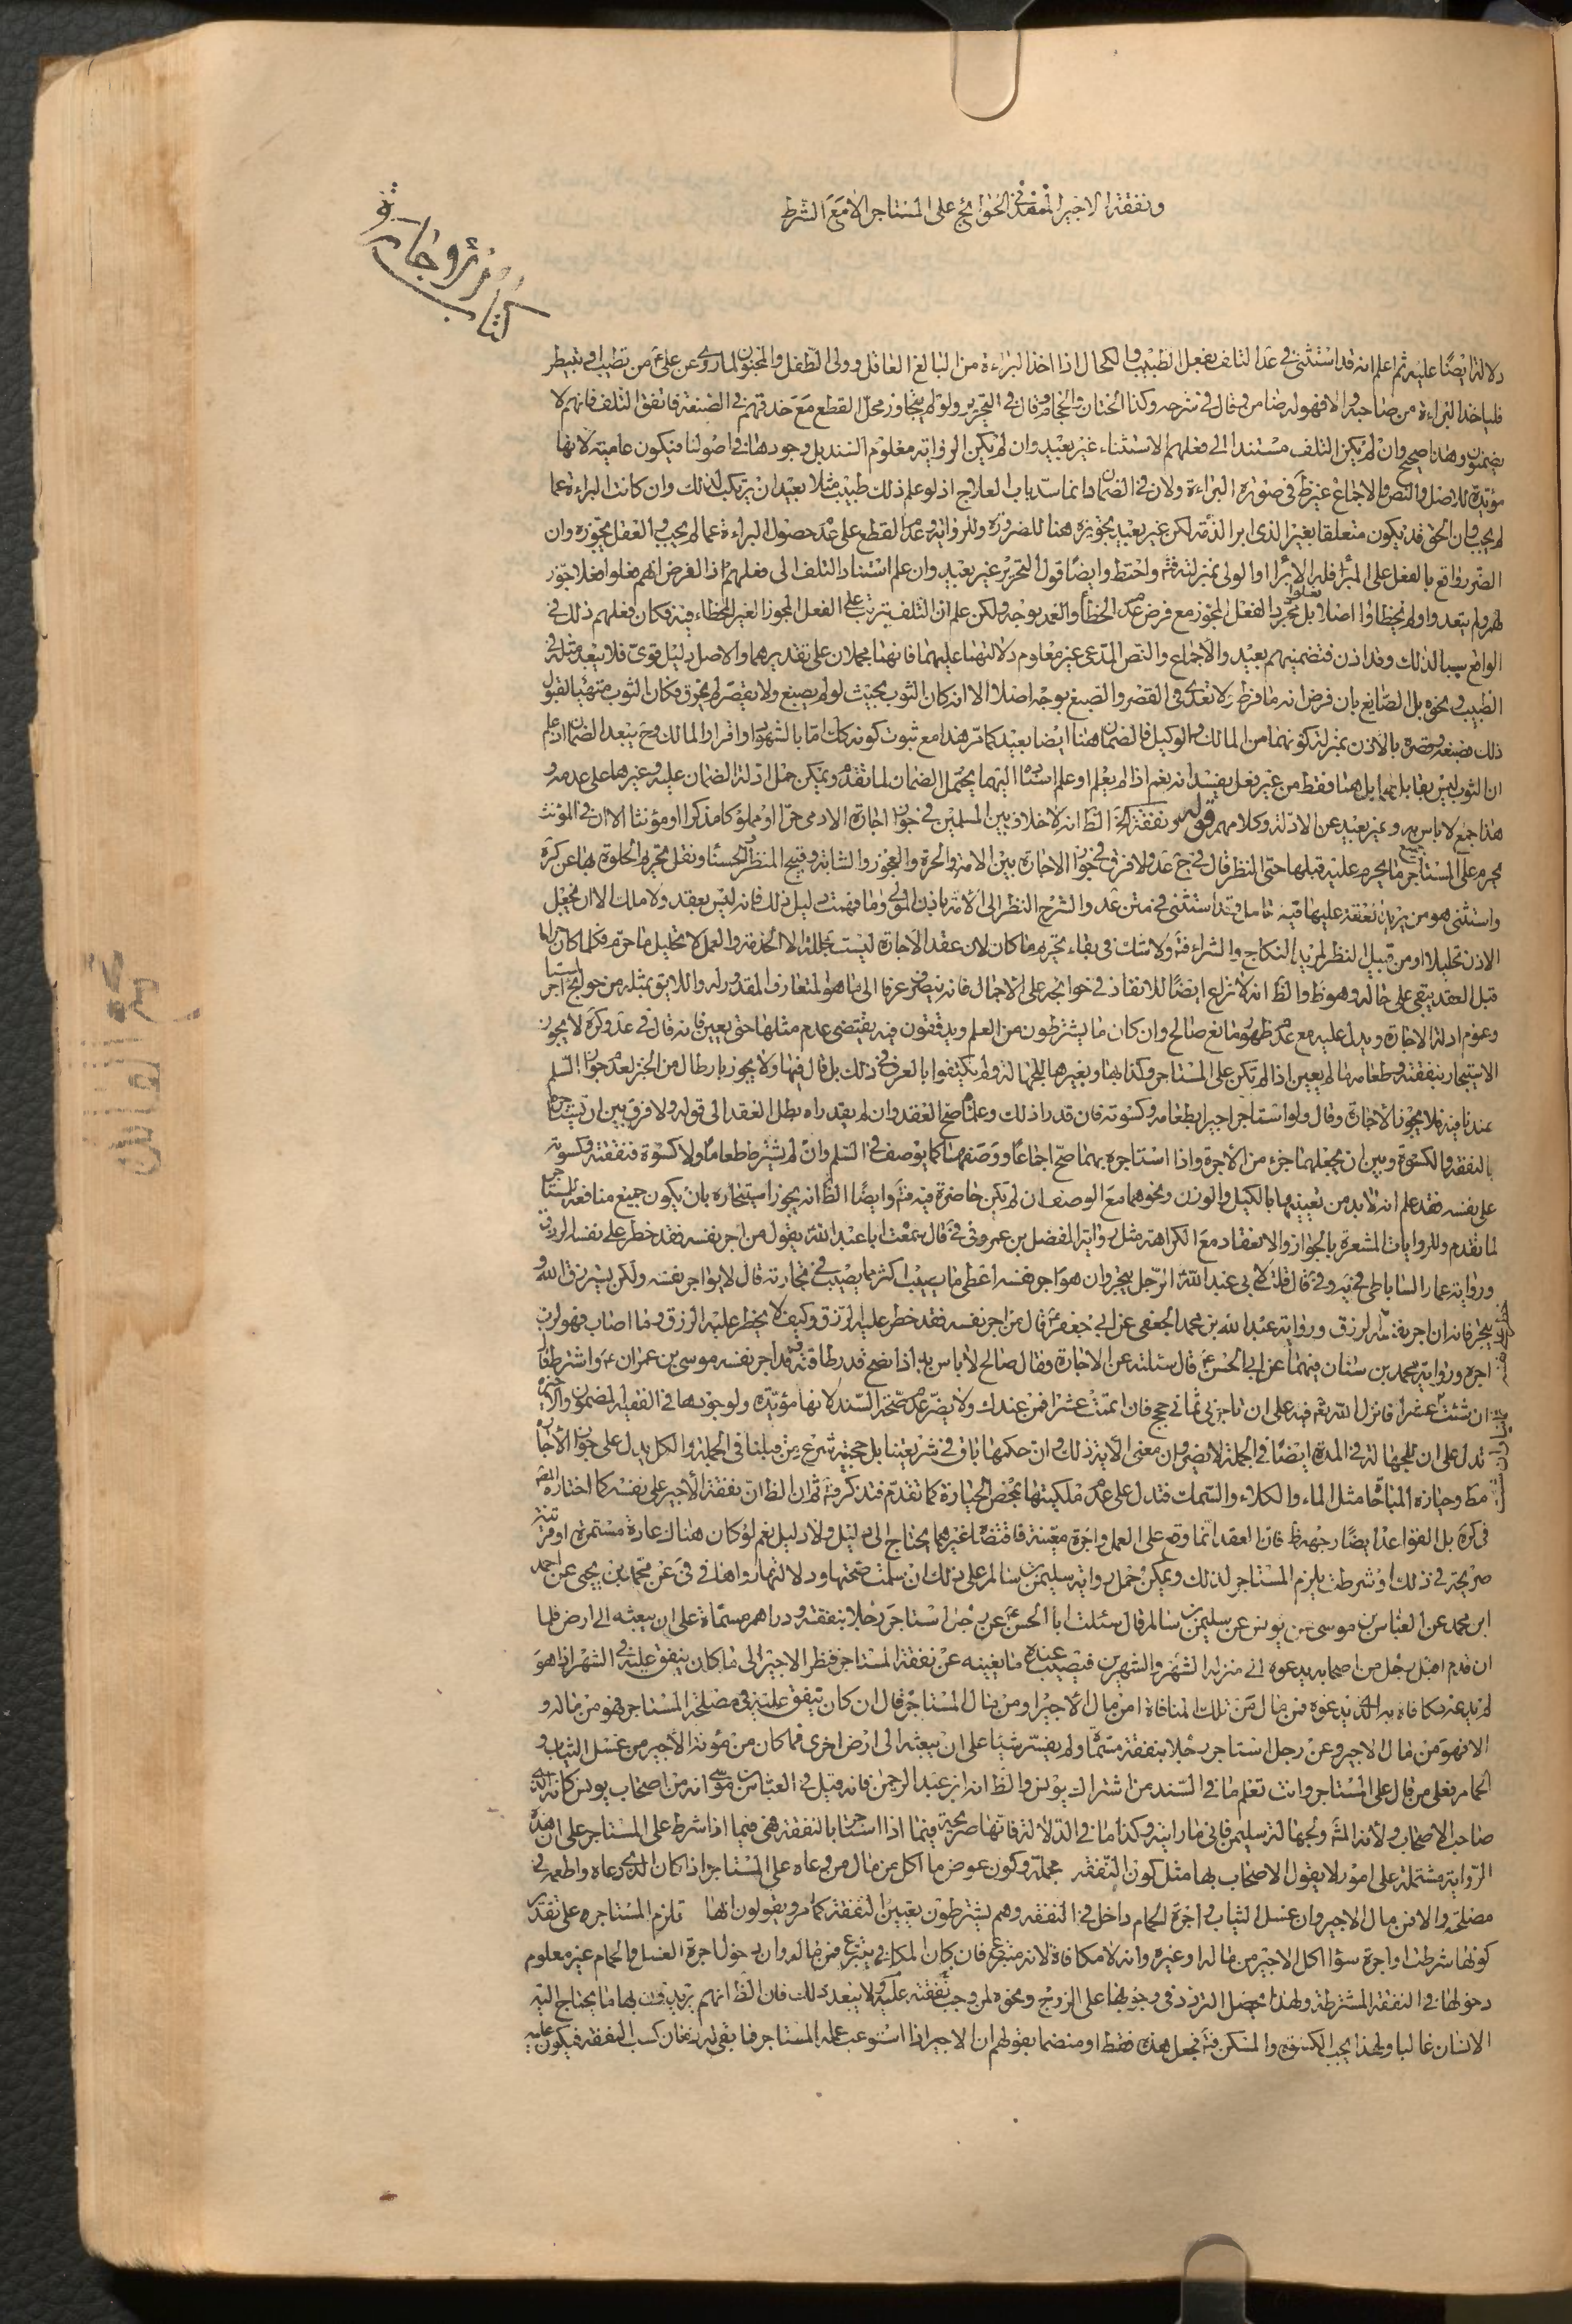 ونفقة الاجير المنفذ في الحوائج على المستاجر الا مع الشرط
كتاب
دلالة ايضا عليه ثم اعلم انه قد استثنى في عد التلف بفعل الطبيب والكحال اذا اخذ البراءة من البالغ العاقل وولي الطفل والمجنون لما روى عن على ع من تطبب او تبيطر
فلياخذ البراءة من صاحبه والا فهو له ضامن وقال في شرحه وكذا الختان والحجام وقال في التحرير ولو لم يتجاوز محل القطع مع حذقهم في الصنعة فاتفق التلف فانهم لا
يضمنون وهذا صحيح وان لم يكن التلف مستندا الى فعلهم الاستثناء غير بعيد وان لم يكن الرواية معلوم السند بل وجودها في اصولنا فيكون عامية لانها
مؤيدة للاصل والنص والاجماع غير ظ في صورة البراءة ولان في الضمان انسداد باب العلاج اذ لو علم ذلك طبيب مثلا بعيد ان يرتكب لذلك وان كانت البراءة عما
لم يجب وان الحق قد يكون متعلقا بغير الذي ابرا الذمة لكن غير بعيد تجويزه هنا للضرورة وللرواية وعدم القطع على عدم حصول البراءة عما لم يجب والعقل يجوزه وان
الضرر واقع بالفعل على المبرأ فله الابراء او الولي بمنزلته فت واحتط وايضا قول التحرير غير بعيد وان علم استناد التلف الى فعلهم اذ الغرض انهم فعلوا فعلا جوز
لهم ولم يتعدوا ولم يخطاوا اصلا بل فعلوا مجرد الفعل المجوز مع فرض عدم الخطأ والتعمد بوجه ولكن علم ان التلف يترتب على الفعل المجوز الغير الخطاء فيه فكان فعلهم ذلك في
الواقع سببا لذلك وقد اذن فتضمينهم بعيد والاجماع والنص المدعى غير معلوم دلالتهما عليهما فانهما مجملان على تقديرهما والاصل دليل قوى فلا يبعد مثله في
الطبيب ونحوه بل الصانع بان فرض انه ما فرط ولا تعدى في القصر والصبغ بوجه اصلا الا انه كان الثوب بحيث لو لم يصبغ ولا يقصر لم يخرق فكان الثوب متهيئا لقبول
ذلك بصبغه وقصره بالاذن بمنزلة كونهما من المالك والوكيل فالضمان هنا ايضا بعيد كما مر هذا مع ثبوت كونه كك اما بالشهود او اقرار المالك وح يبعد الضمان اذ علم
ان الثوب ليس بقابل لهما بل هما فقط من غير فعل يفسد انه نعم اذا لم يعلم او علم استناده اليهما يحتمل الضمان لما تقدم ويمكن حمل ادلة الضمان عليه وغيرها على عدمه و
هذا جمع لا باس به وغير بعيد عن الادلة وكلامهم قوله ونفقة الخ الظ انه لا خلاف بين المسلمين في جواز اجارة الادمى حرا او مملوكا مذكرا او مؤنثا الا ان في المؤنث
يحرم على المستاجر جميع ما يحرم عليه قبلها حتى النظر قال في عد ولا فرق في جواز الاجارة بين الامة والحرة والعجوز والشابة وقبيح المنظر والحسناء ونقل تحريم الخلوة بها عن كره
واستثنى هو من يريد نفقته عليها فيه تامل وقد استثنى في متن عد والشرح النظر الى الامة باذن المولى وما فهمت دليل ذلك فانه ليس بعقد ولا ملك الا ان يجعل
الاذن تحليلا او من قبيل النظر لمريد النكاح والشراء فت ولا شك في بقاء تحريم ما كان لان عقد الاجارة ليست محللة الا الخدمة والعمل لا تحليل ما حرم فكلما كان حراما
قبل العقد يبقى على حاله وهو ظ والظ انه لا نزاع ايضا للانفاذ في حوائجه على الاجمال فانه ينصرف عرفا الى ما هو المتعارف المقدور له واللائق بمثله من حوائج المستاجر
وعموم ادلة الاجارة ويدل عليه مع عدم ظهور مانع صالح وان كان ما يشترطون من العلم ويدققون فيه يقتضى عدم مثلها حتى يعين فانه قال في عد وكره لا يجوز
الاستيجار بنفقته وطعامه ما لم يعين اذا لم تكن على المستاجر وكذا بها وبغيرها للجهالة ولم يكتفوا بالعرف في ذلك بل قال فيها ولا يجوز بارطال من الخبز لعدم جواز السلم
عندنا فيه فلا يجوز الاجارة وقال ولو استاجر اجيرا بطعامه وكسوته فان قدر ذلك وعلماه صح العقد وان لم يقدراه بطل العقد الى قوله ولا فرق بين ان يستاجره
بالنفقة والكسوة وبين ان يجعلهما جزء من الاجرة واذا استاجره بهما صح اجماعا ووصفهما كما يوصف في السلم وان لم يشترط طعاما ولا كسوة فنفقته وكسوته
على نفسه فقد علم انه لا بد من تعيينهما بالكيل والوزن ونحوهما مع الوصف ان لم تكن حاضرة فيه فت وايضا الظ انه يجوز استيجاره بان يكون جميع منافعه للمستاجر
لما تقدم وللروايات المشعرة بالجواز والانعقاد مع الكراهة مثل رواية المفضل بن عمر وفي في قال سمعت ابا عبد الله ع يقول من اجر نفسه فقد حظر على نفسه الرزق
ورواية عمار الساباطى في يه وفي في قال قلت لابي عبد الله ع الرجل يتجر وان هو اجر نفسه اعطى ما يصيب اكثر مما يصيب في تجارته قال لا يواجر نفسه ولكن يسترزق الله و
يتجر فانه ان اجر نفسه الرزق ورواية عبد الله بن محمد الجعفى عن ابى جعفر ع قال من اجر نفسه فقد حظر عليه الرزق وكيف لا يحظر عليه الرزق وما اصاب فهو لرب
اجره ورواية محمد بن سنان فيهما عن ابى الحسن ع قال سئلته عن الاجارة وقال صالح لا باس بها اذا نصح قدر طاقته قد اجر نفسه موسى بن عمران ع واشترط فقال
ان شئت عشرا فانزل الله تع فيه على ان تاجرنى ثمانى حجج فان اتممت عشرا فمن عندك ولا يضر عدم صحة السند لانها مؤيدة ولوجودها في الفقيه المضمون والاخيرة
تدل على ان الجهالة في المدة ايضا في الجملة لا يضر وان معنى الاية ذلك وان حكمها باق في شريعتنا بل حجية شرع من قبلنا في الجملة والكل يدل على جواز الاجارة
مط وحيازة المباحات مثل الماء والكلاء والسمك فتدل على عدم ملكيتها بمحض الحيازة كما تقدم فتذكر فت ثم ان الظ ان نفقة الاجير على نفسه كما اختاره المص
في كره بل الفواعد ايضا وجهه ظ فان العقد انما وقع على العمل واجرة معينة فاقتضاء غيرهما يحتاج الى دليل ولا دليل نعم لو كان هناك عادة مستمرة او قرينة
صريحة في ذلك او شرطت يلزم المستاجر لذلك ويمكن حمل رواية سليمن بن سالم على ذلك ان سلمت صحتها ودلالتها رواها في في عن محمد بن يحيى عن احمد
ابن محمد عن العباس بن موسى عن يونس عن سليمن بن سالم قال سئلت ابا الحسن ع عن رجل استاجر رجلا بنفقة ودراهم مسماة على ان يبعثه الى ارض فلما
ان قدم اقبل رجل من اصحابه يدعوه الى منزله الشهر والشهرين فيصيب عنده ما يغنيه عن نفقة المستاجر فنظر الاجير الى ما كان ينفق عليه في الشهر اذا هو
لم يدعه فكافاه به الذى يدعوه فمن مال من تلك المكافاة امن مال الاجير او من مال المستاجر قال ان كان في مصلحة المستاجر فهو من ماله و
الا فهو من مال الاجير وعن رجل استاجر رجلا بنفقة مسماة ولم يفسر شيئا على ان يبعثه الى ارض اخرى فما كان من مؤنة الاجير من غسل الثياب و
الحمام فعلى من قال على المستاجر وانت تعلم ما في السند من اشتراك يونس والظ انه ابن عبد الرحمن فانه قيل في العباس بن موسى انه من اصحاب يونس كانه
صاحب الاصحاب ولانه وجهالة سليمن فانى ما رايته وكذا ما في الدلالة فانها صريحة فيما اذا استاجر بالنفقة فهى فيما اذا شرط على المستاجر على ان هذه
الرواية مشتملة على امور لا يقول الاصحاب بها مثل كون النفقة مجملة وكون عوض ما اكل من مال من دعاه على المستاجر اذا كان الذى دعاه واطعمه في
مصلحته والا فمن مال الاجير وان غسل الثياب واجرة الحمام داخل في النفقة وهم يشترطون تعيين النفقة كما مر ويقولون انها تلزم المستاجر على تقدير
كونها شرطت او اجرة سواء اكل الاجير من ماله او غيره وانه لا مكافاة لانه متبرع فان كان المكافى يتبرع فمن ماله وان دخول اجرة الغسل والحمام غير معلوم
دخولها في النفقة المشترطة ولهذا يحصل التردد في وجوبها على الزوج ونحوه لمن وجب نفقته عليه ولا يبعد ذلك فان الظ انهم يريدون بها ما يحتاج اليه
الانسان غالبا ولهذا يجب الكسوة والمسكن فت فيجعل هذه فقط او منضما بقولهم ان الاجير اذا استوعب عمله المستاجر فما بقى له زمان كسب النفقة فيكون عليه